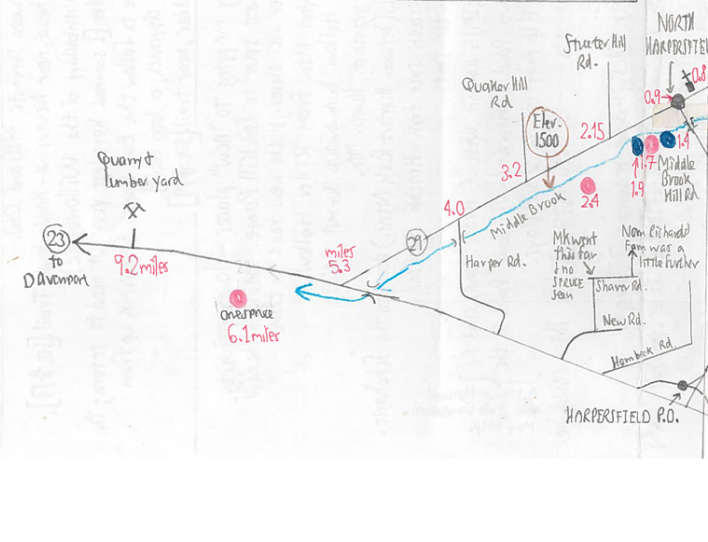 NORTH
HARPERSFIEL
0.8
0.9
Streeter Hill
Rd.
Quaker Hill
Rd
Elev.
1500
2.15
3.2
1.4
1.7
1.9
Middle
Brook
Hill Rd
2.4
Middle Brook
4.0
29
Quarry &
lumber yard
23
to
Davenport
9.2 miles
miles
5.3
one spruce
6.1 miles
Harper Rd.
MK went
this far
& no
SPRUCE
seen
Nom Richards
Farm was a
little further
Shaver Rd.
New Rd.
Hambick Rd.
HARPERSFIELD P.O.